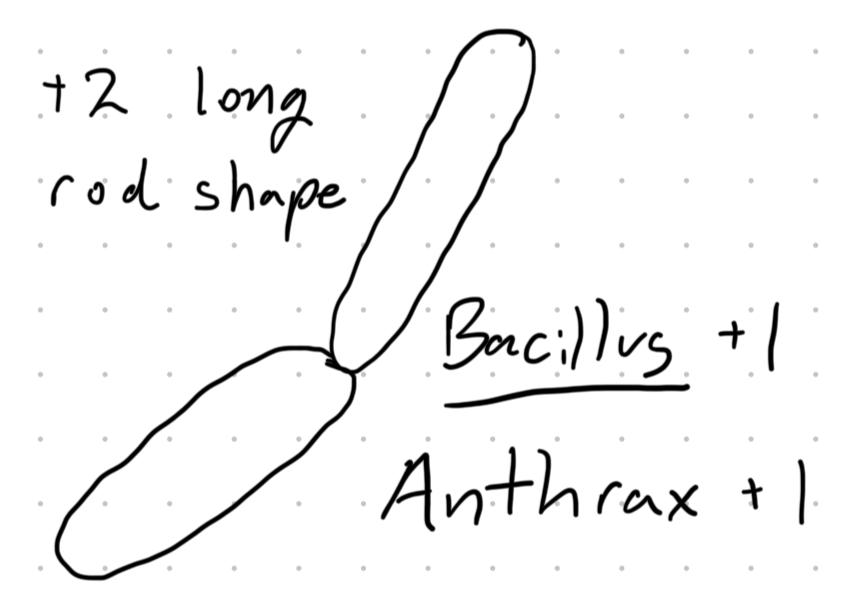 +2 long
rod shape
Bacillus +1
Anthrax +1